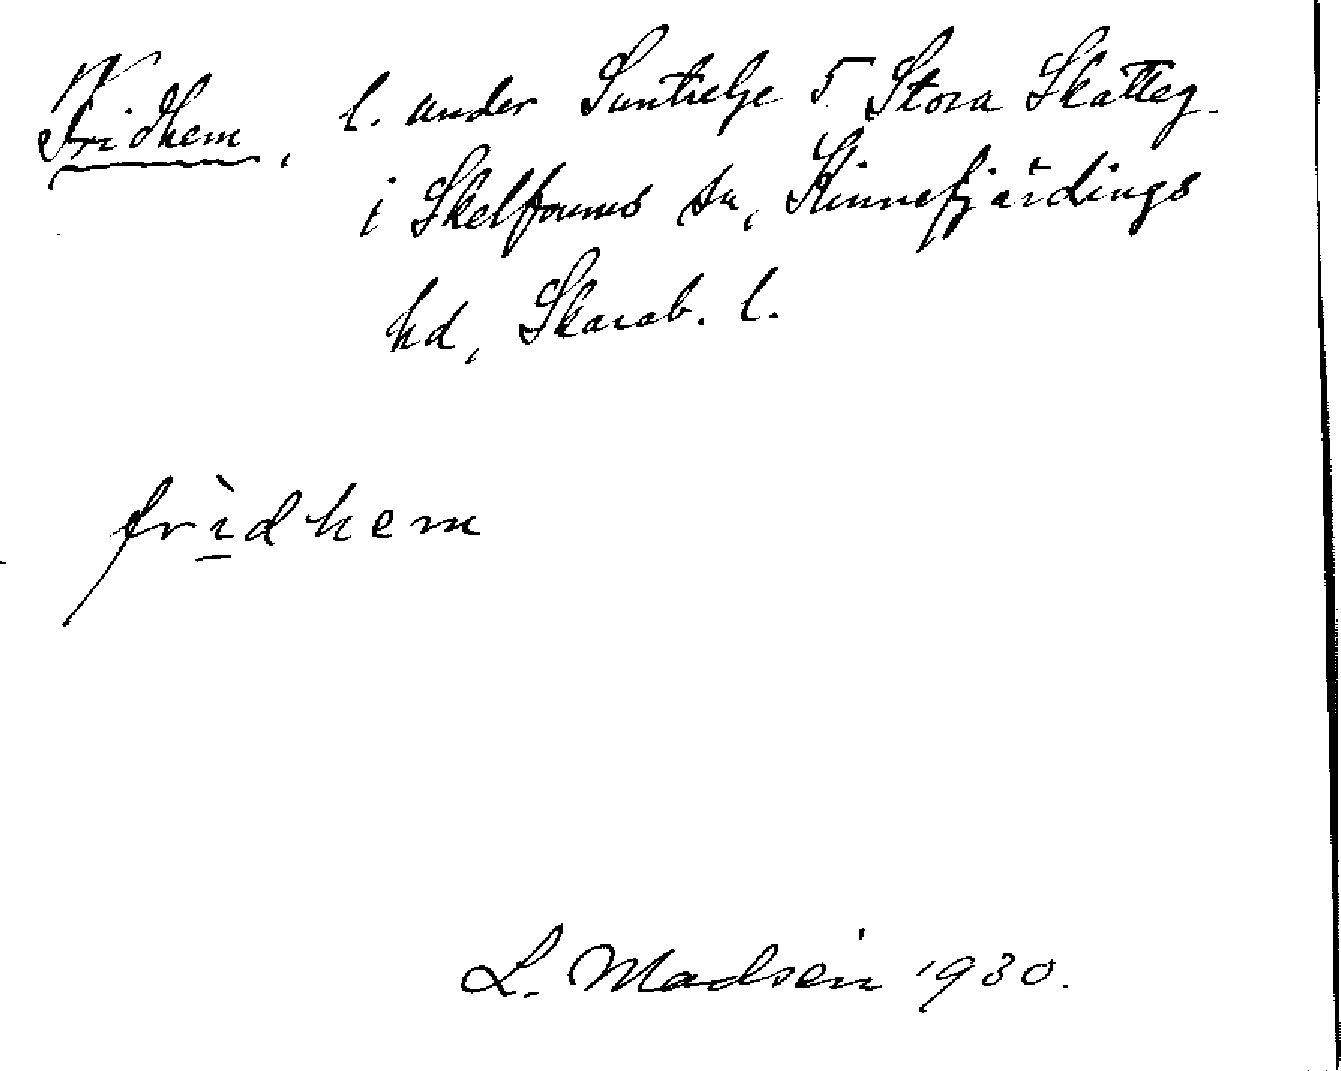 Fridhem, l. under Suntetorp 5 Stora Skatteg.
i Skelfvums sn, Kinnefjärdings
hd, Skarab. l.
frìdhem
L. Madsén 1930.